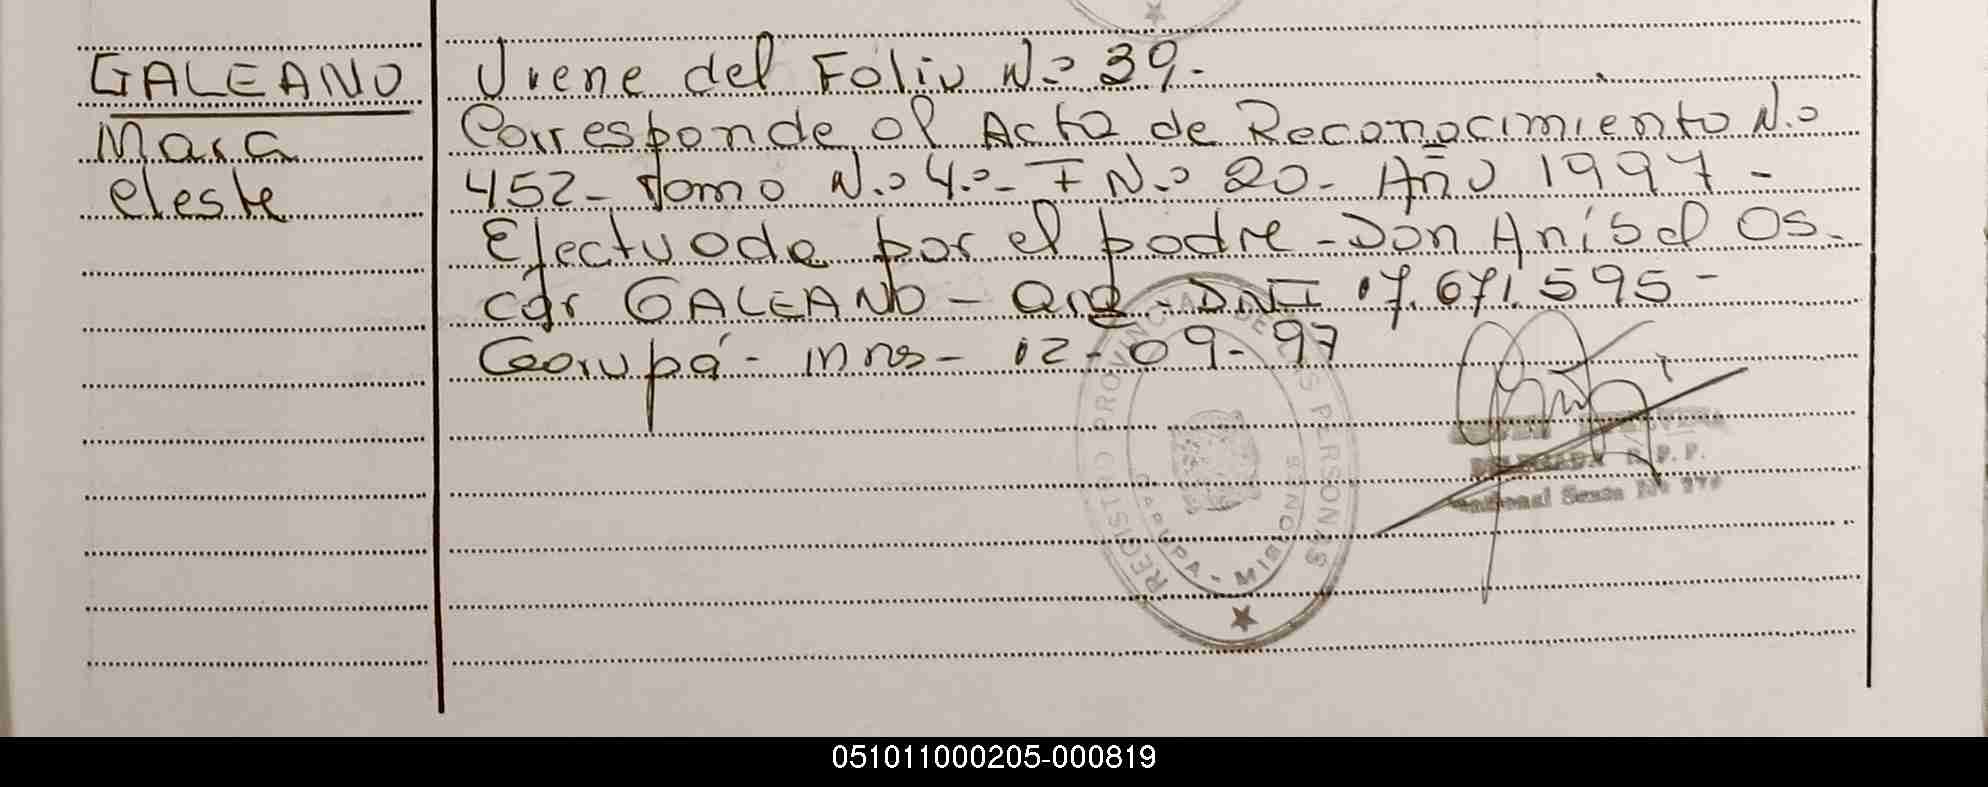 GALEANO
Mara
eleste
Viene del Folio N.º 39.-
Corresponde al Acta de Reconocimiento N.º
452- Tomo N.º 4.º- F N.º 20- Año 1997-
Efectuada por el padre - Don Aníbal Os-
car GALEANO - Arg - DNI 17.671.595-
Garupá - mns - 12-09-97
REGISTRO PROVINCIAL DE LAS PERSONAS
GARUPA - MISIONES
DELEGADA R.P.P.
Seccional Sexta Nº
051011000205-000819